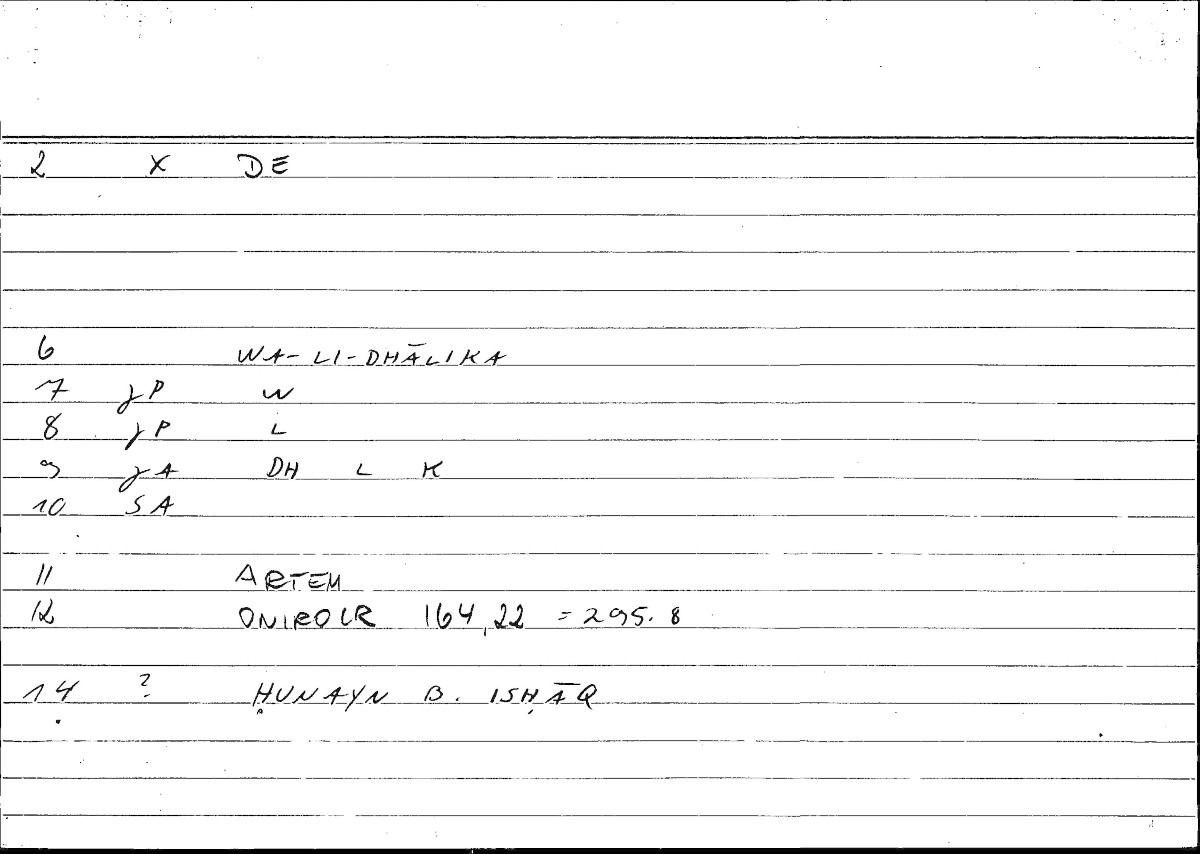 2 X DE
6 WA-LI-DHĀLIKA
7 γP W
8 γP L
9 γA DH L K
10 SA
11 ARTEM
12 ONIROCR 164,22 = 295.8
14 ? ḤUNAYN B. ISḤĀQ